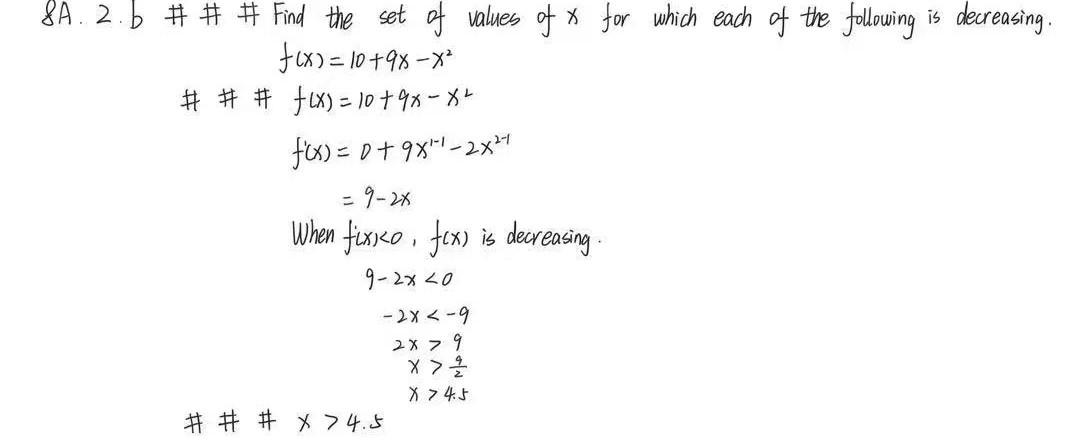 8A. 2. b # # # Find the set of values of x for which each of the following is decreasing.
f(x) = 10 + 9x - x²
# # # f(x) = 10 + 9x - x²
f'(x) = 0 + 9x¹⁻¹ - 2x²⁻¹
= 9 - 2x
When f'(x) < 0, f(x) is decreasing.
9 - 2x < 0
-2x < -9
2x > 9
x > 9/2
x > 4.5
# # # x > 4.5